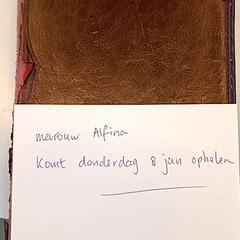 mevrouw Alfina
komt donderdag 8 jan ophalen